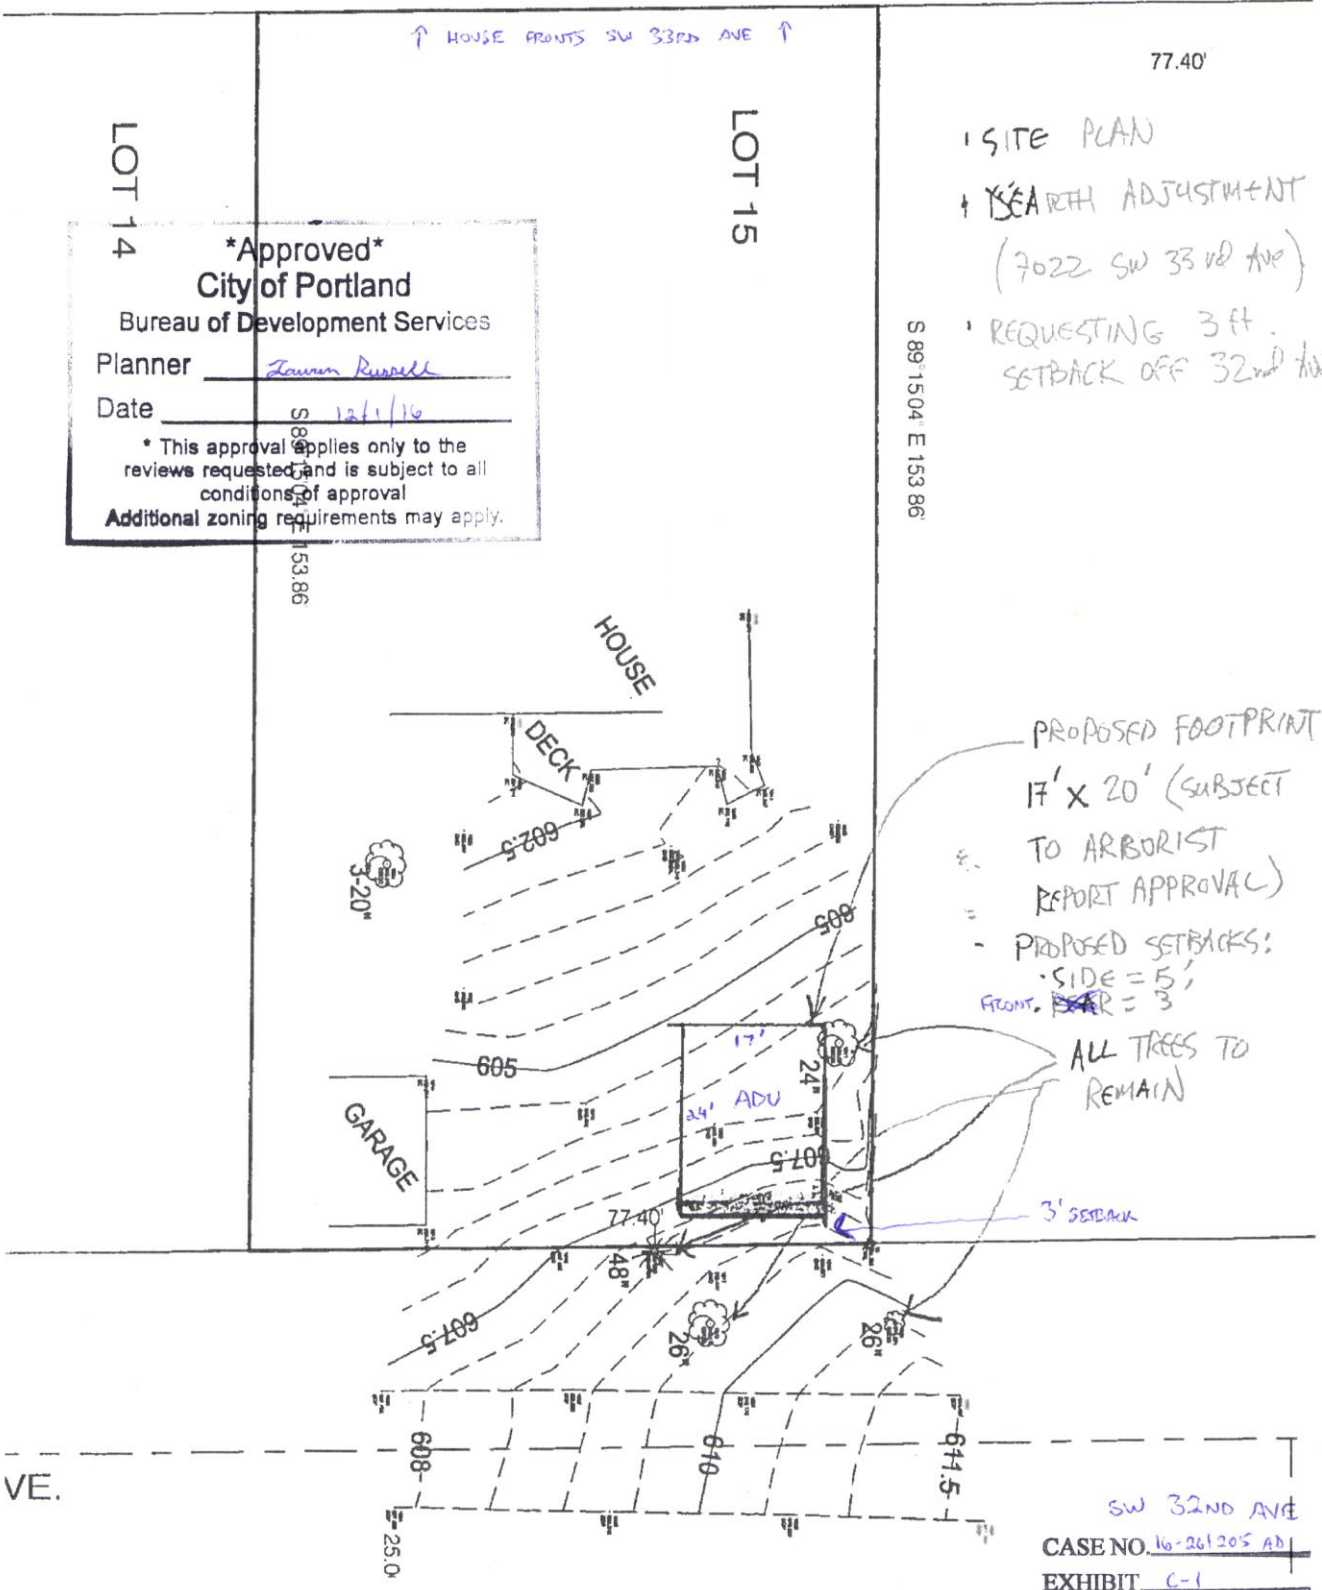 ↑ HOUSE FRONTS SW 33RD AVE ↑
77.40'
LOT 14
LOT 15
*Approved*
City of Portland
Bureau of Development Services
Planner Lauren Russell
Date 12/1/16
* This approval applies only to the
reviews requested and is subject to all
conditions of approval
Additional zoning requirements may apply.
S 89°15'04" E 153.86'
S 89°15'04" E 153.86'
SITE PLAN
ADJUSTMENT
(7022 SW 33rd Ave)
REQUESTING 3 ft.
SETBACK OFF 32nd
HOUSE
DECK
602.5
3-20"
605
605
PROPOSED FOOTPRINT
17' X 20' (SUBJECT
TO ARBORIST
REPORT APPROVAL)
- PROPOSED SETBACKS:
· SIDE = 5'
FRONT. = 3
ALL TREES TO
REMAIN
17'
24"
24' ADU
607.5
GARAGE
77.40'
3' SETBACK
48"
607.5
26"
26"
608
610
611.5
VE.
25.0
SW 32ND AVE
CASE NO. 16-261205 AD
EXHIBIT C-1